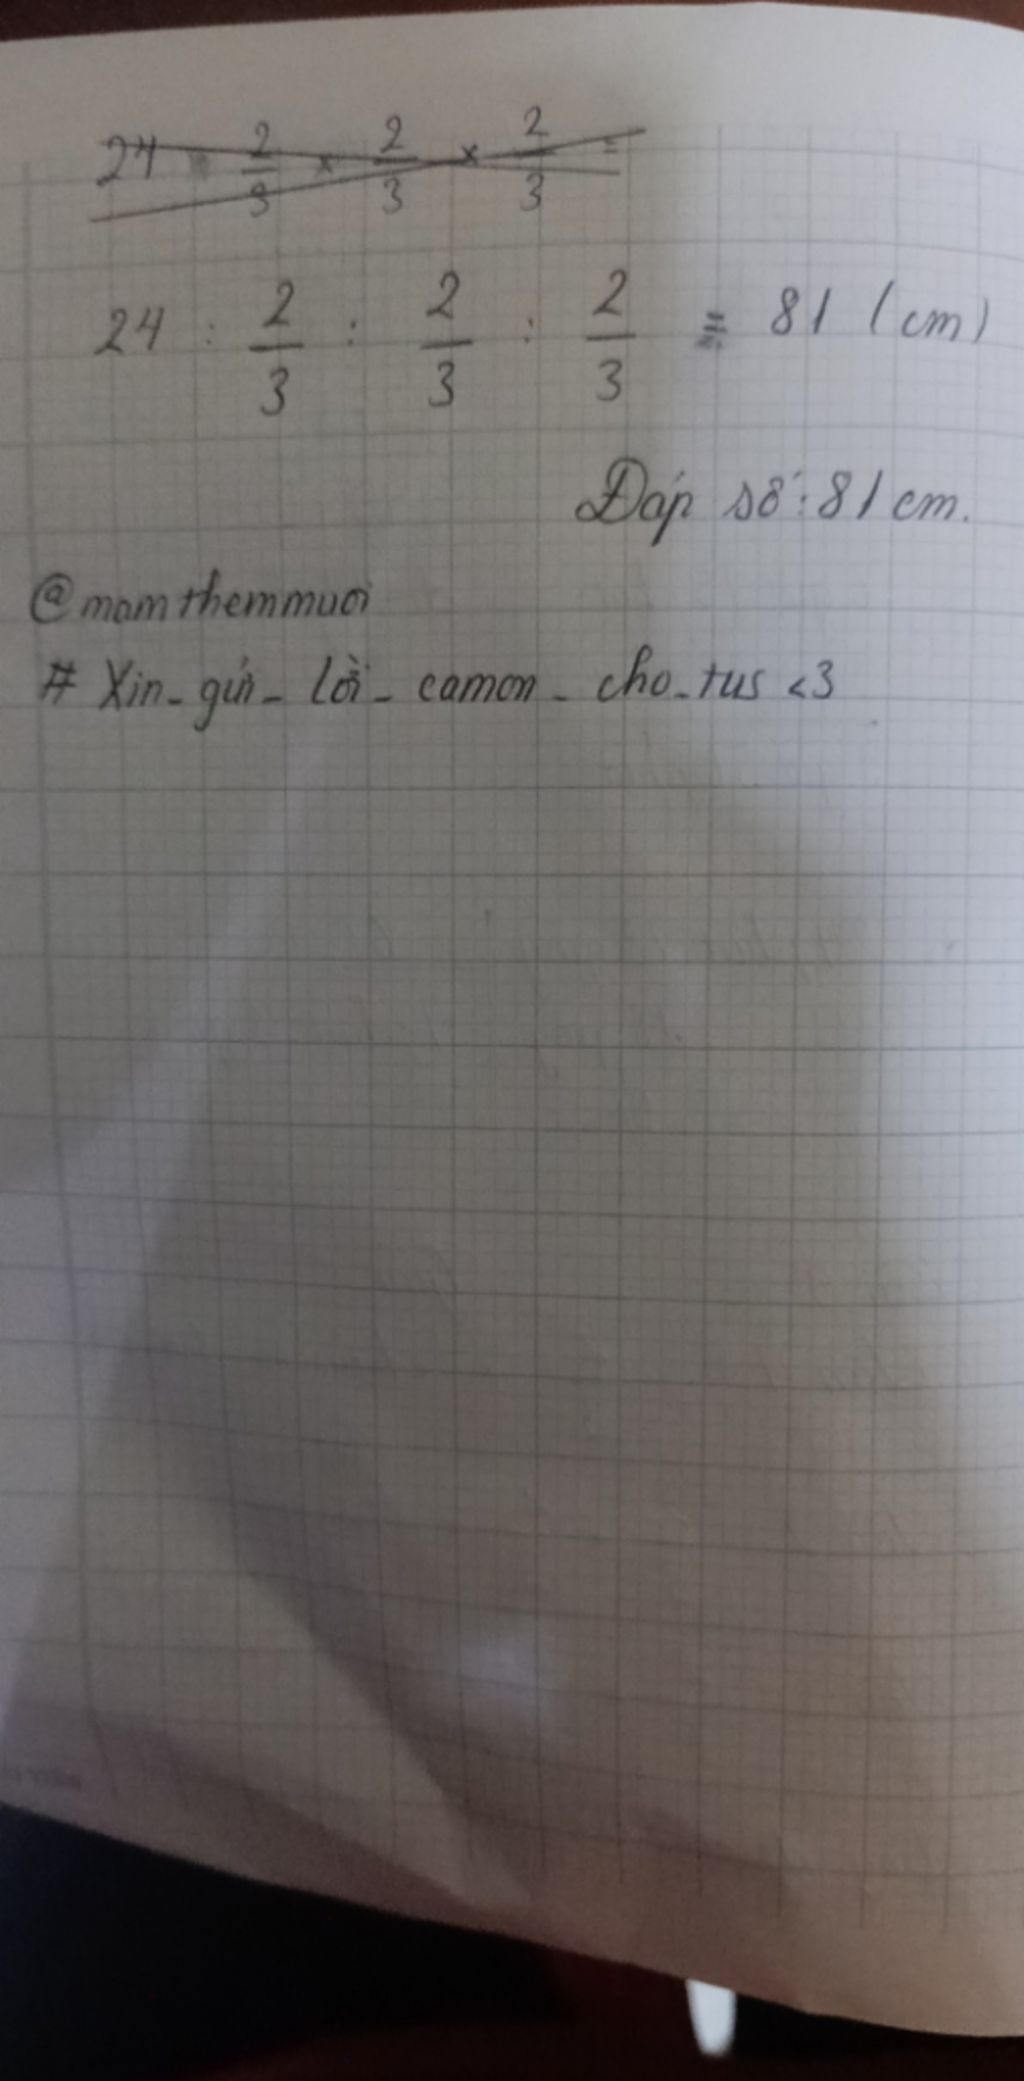 24 × 2/3 × 2/3 × 2/3 =
24 : 2/3 : 2/3 : 2/3 = 81 (cm)
Đáp số: 81 cm.
@mamthemmuoi
# Xin_gửi_lời_camon_cho_tus <3